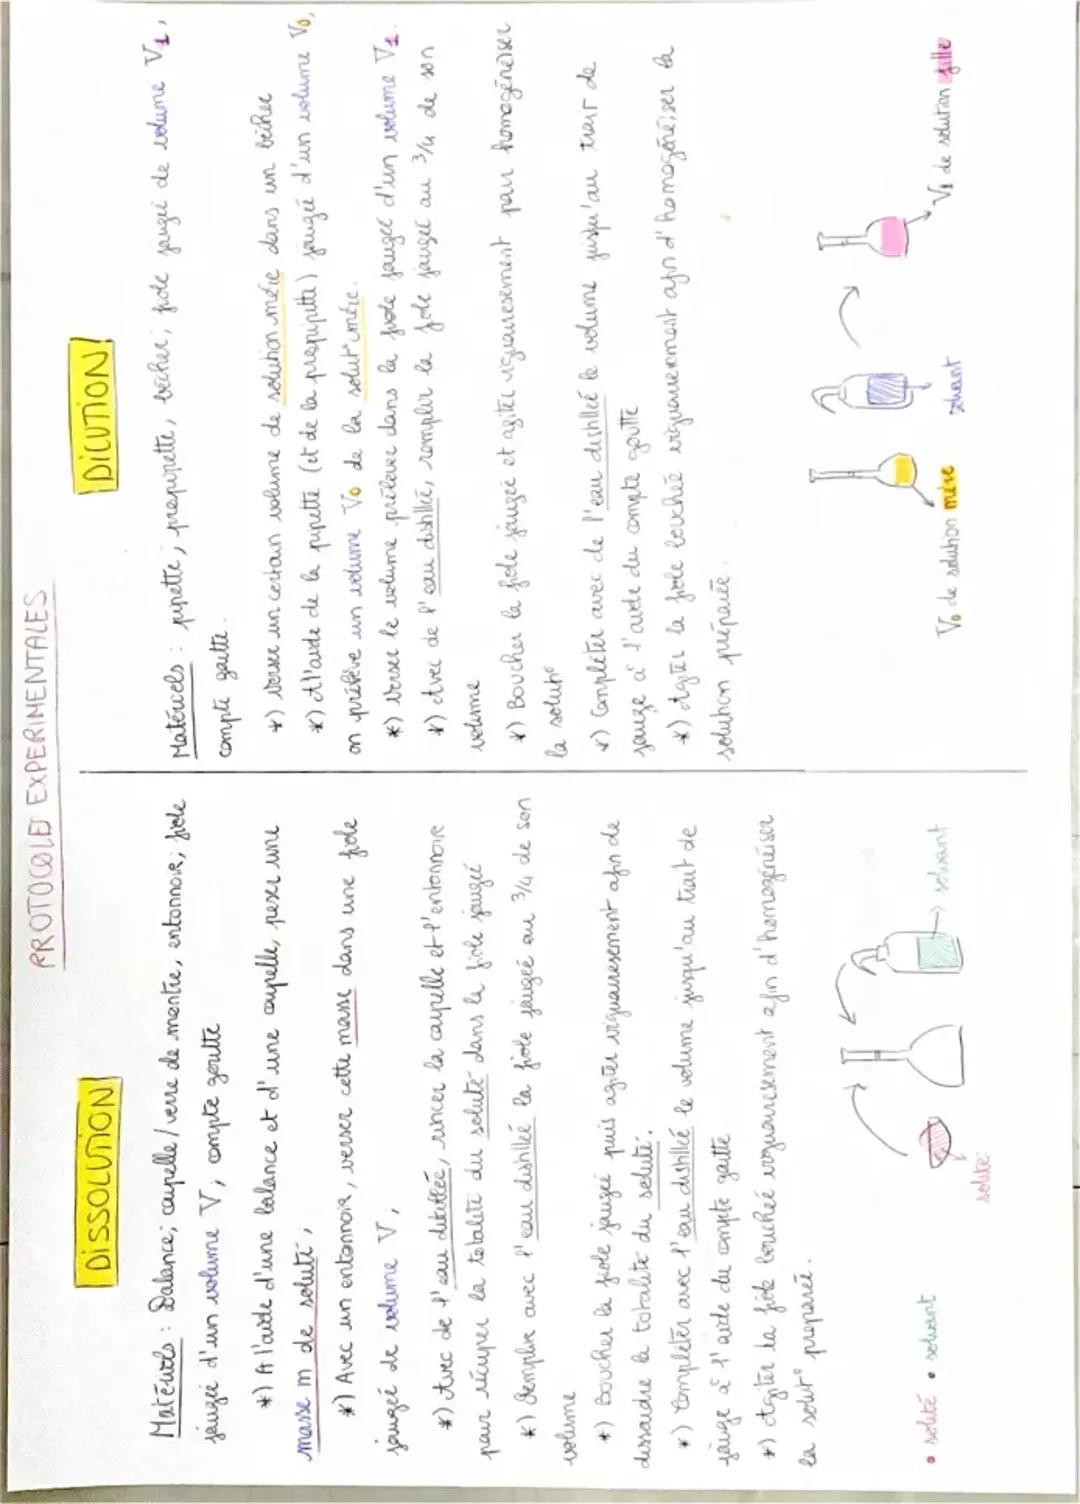 PROTOCOLES EXPERIMENTALES
DISSOLUTION
Matériels : Balance; coupelle/verre de montre, entonnoir; fiole
jaugée d'un volume V; compte goutte
*) A l'aide d'une balance et d'une coupelle, peser une
masse m de soluté;
*) Avec un entonnoir, verser cette masse dans une fiole
jaugée de volume V;
*) Avec de l'eau distillée, rincer la coupelle et l'entonnoir
pour récuper la totalité du soluté dans la fiole jaugée
*) Remplire avec l'eau distillée la fiole jaugée au 3/4 de son
volume
*) Boucher la fiole jaugée puis agiter vigoureusement afin de
dissoudre la totalité du soluté.
*) Compléter avec l'eau distillé le volume jusqu'au trait de
jauge à l'aide du compte goutte
*) Agiter la fiole bouchée vigoureusement afin d'homogénéiser
la solut° préparée.
• soluté • solvant
soluté
solvant
DILUTION
Matériels : pipette; propipette, bécher; fiole jaugée de volume V1,
compte goutte.
*) Verser un certain volume de solution mère dans un bécher
*) A l'aide de la pipette (et de la propipette) jaugée d'un volume V0,
on prélève un volume V0 de la solut° mère.
*) Verser le volume prélevé dans la fiole jaugée d'un volume V1.
*) Avec de l'eau distillée, remplir la fiole jaugée au 3/4 de son
volume
*) Boucher la fiole jaugée et agiter vigoureusement pour homogénéiser
la solut°
*) Compléter avec de l'eau distillée le volume jusqu'au trait de
jauge à l'aide du compte goutte
*) Agiter la fiole bouchée vigoureusement afin d'homogénéiser la
solution préparée.
V0 de solution mère
solvant
V1 de solution fille